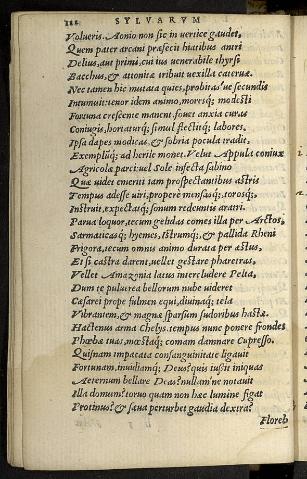 122 SYLVARVM
Volueris. Aonio non sic in uertice gaudet,
Quem pater arcani præfecit hiatibus antri
Delius, aut primi, cui ius uenerabile thyrsi
Bacchus, & attonitæ tribuit uexilla cateruæ.
Nec tamen hic mutata quies, probitas´ue secundis
Intumuit: tenor idem animo, moresq; modesti
Fortuna crescente manent. fouet anxia curas
Coniugis, hortaturq; simul flectitq; labores.
Ipsa dapes modicas, & sobria pocula tradit,
Exemplūq; ad herile monet. Velut Appula coniux
Agricolæ parci: uel Sole infecta sabino
Quæ uidet emeriti iam prospectantibus astris
Tempus adesse uiri, propere mensasq; torosq;
Instruit, expectatq; sonum redeuntis aratri.
Parua loquor, tecum gelidas comes illa per Arctos,
Sarmaticasq; hyemes, Istrumq;, & pallida Rheni
Frigora, tecum omnis animo durata per æstus,
Et si castra darent, uellet gestare pharetras,
Vellet Amazonia latus intercludere Pelta,
Dum te puluerea bellorum nube uideret
Cæsarei prope fulmen equi, diuinaq; tela
Vibrantem, & magnæ sparsum sudoribus hastæ.
Hactenus arma Chelys. tempus nunc ponere frondes
Phœbe tuas, mœstaq; comam damnare Cupresso.
Quisnam impacata consanguinitate ligauit
Fortunam, inuidiamq; Deus? quis iußit iniquas
Aeternum bellare Deas? nullam´ne notauit
Illa domum? toruo quam non hæc lumine figat
Protinus? & sæua perturbet gaudia dextra?
Floreb